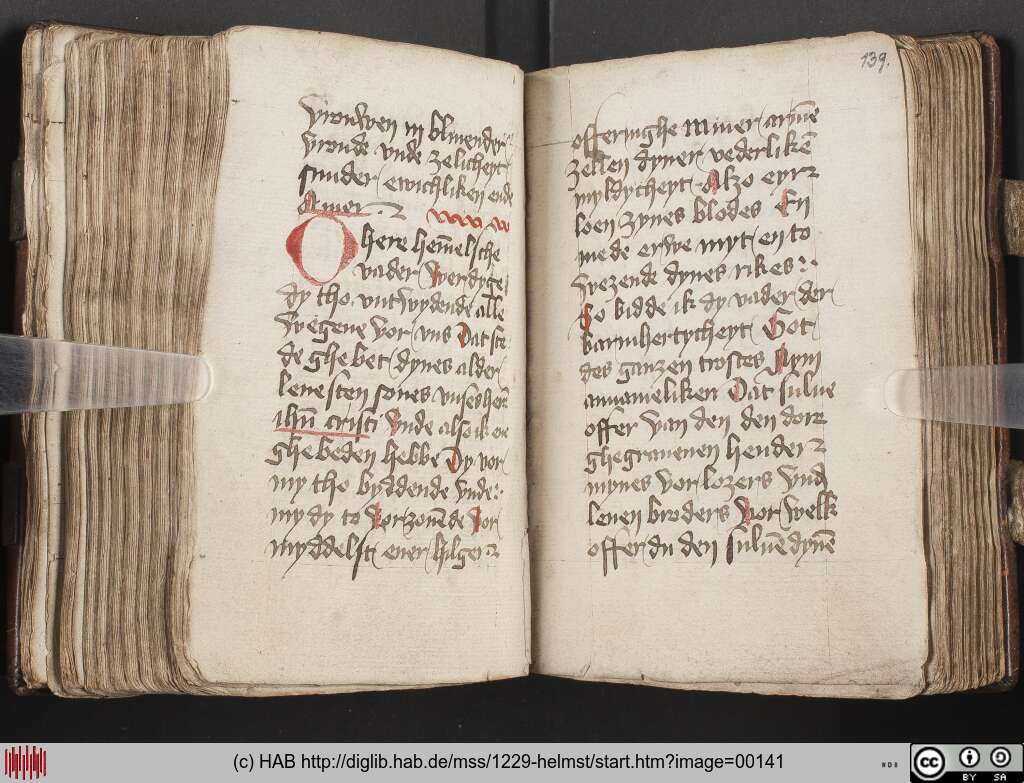 vrouwen in bliuender
vronde vnde zelicheyt
sunder ewichliken ende
Amen
O here hemelsche
vader werdyge
dy tho vnt
wegene vor vns Dat ste
de ghebet dynes alder
leuesten sones vnses hern
ihu cristi Vnde also
ghebeden hebbe Dy vor
my tho byddende vnde
my dy to vorzonende Vor
myddelst ener hilgen
139.
offeringhe miner armen
zellen dyner vederliken
myldycheyt Alzo eyn
loen zynes blodes En
mede erwe myt en to
wezende dynes rikes
So bidde ik dy vader der
barmhertycheyt Got
des ganzen trostes Nym
annameliken Dat sulue
offer van den den dorch
ghegrauenen henden
mynes vorlozers vnd
leuen broders Vor welk
offer du den suluen dynen
(c) HAB http://diglib.hab.de/mss/1229-helmst/start.htm?image=00141
WDB
cc BY SA